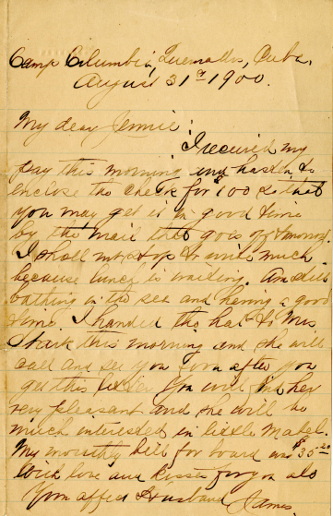 Camp Columbia, Quemados, Cuba,
August 31st 1900.
My dear Jennie:
I received my
pay this morning and hasten to
enclose the check for $100 so that
you may get it in good time
by the mail that goes off
I shall not stop to write much
because lunch is waiting. Am still
bathing in the sea and having a good
time. I handed the hat to Mrs.
this morning and she will
call and see you soon after you
get this letter. You will find her
very pleasant and she will be
much interested in little Mabel.
My monthly bill for board was $35
With love and kisses for you all
Your affec Husband James.